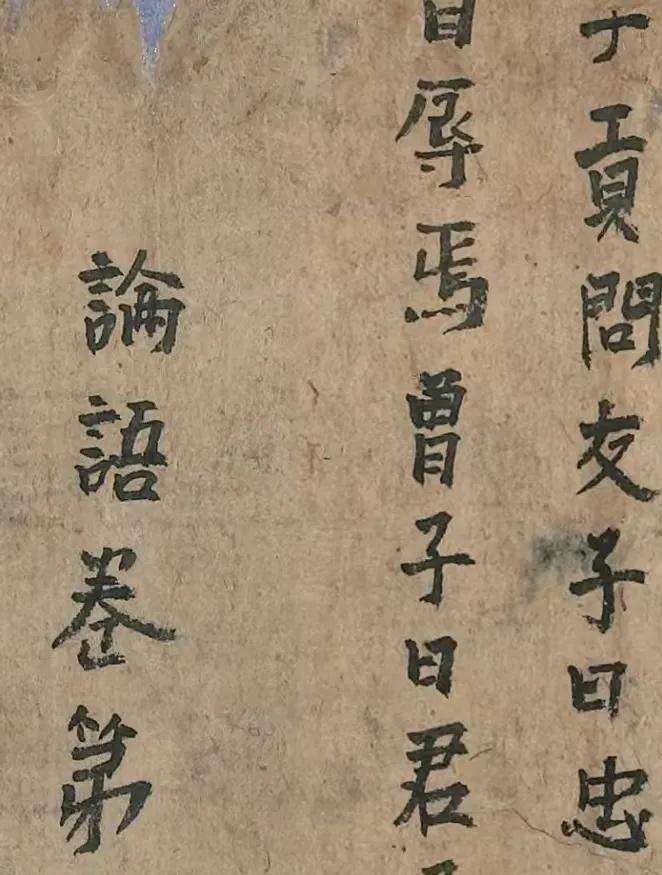 子貢問友子曰忠
自辱焉曾子曰君
論語卷第